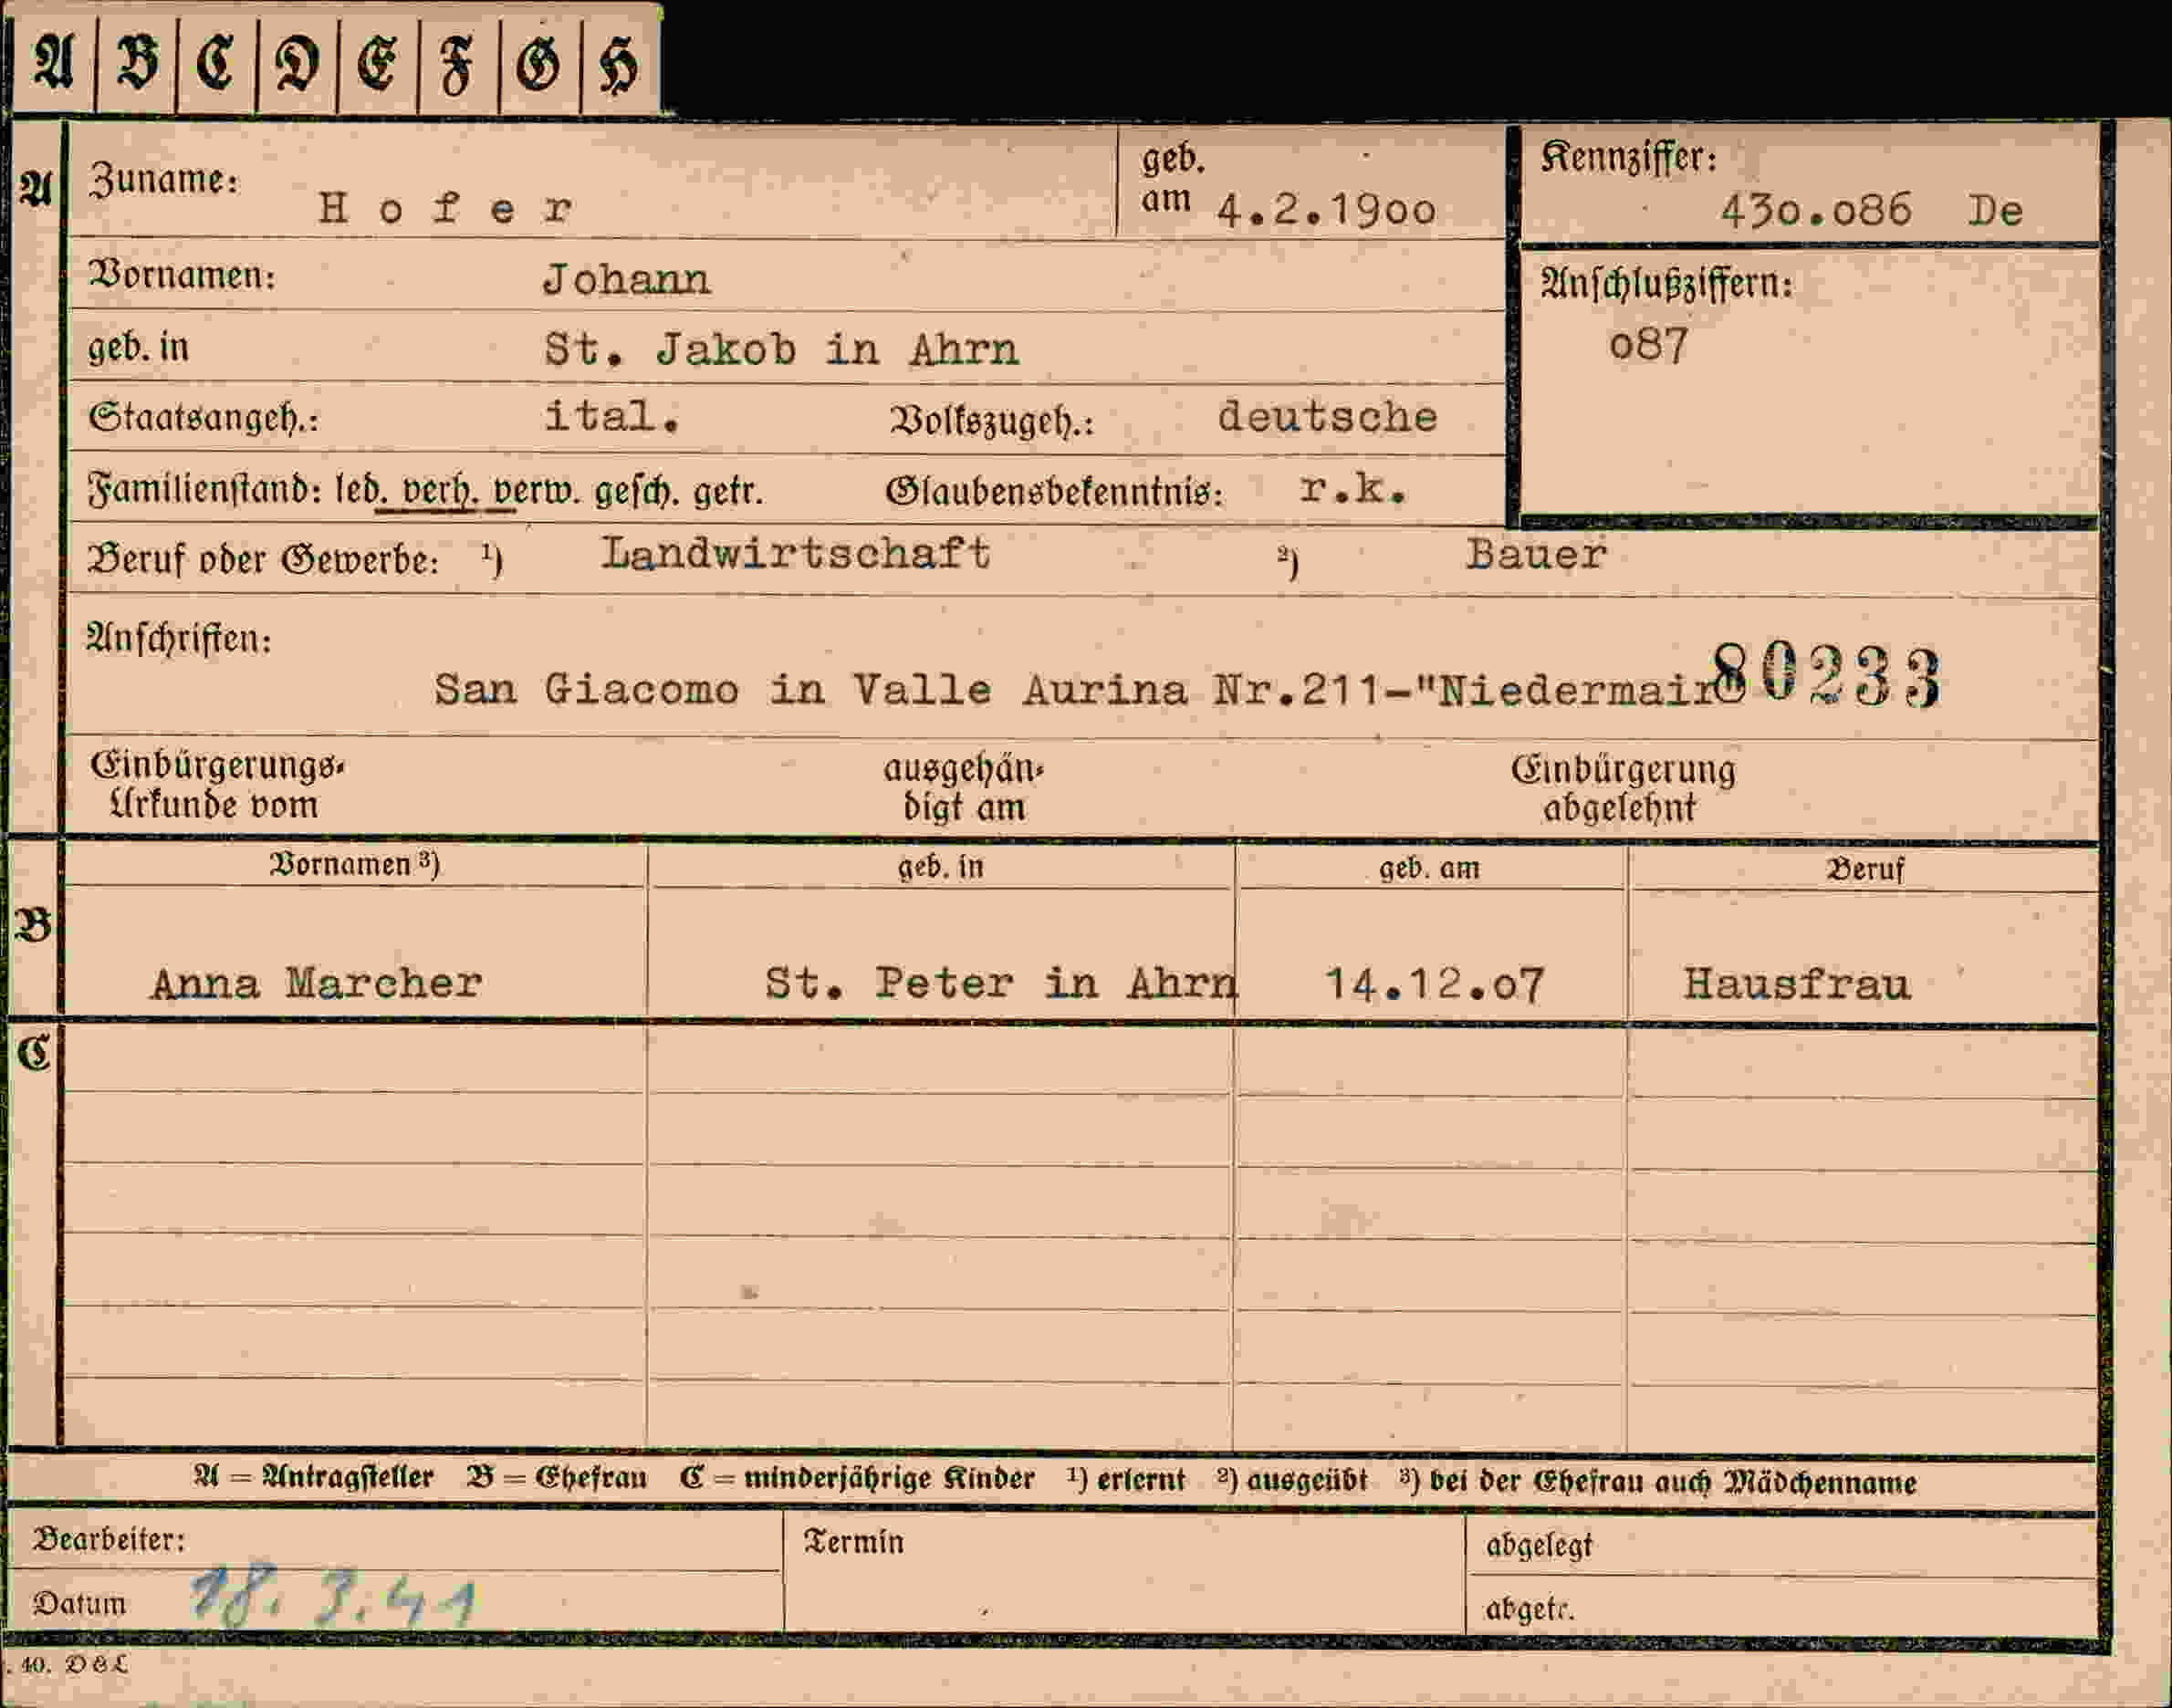 A B C D E F G H
A Zuname: Hofer geb. am 4.2.1900 Kennziffer: 430.086 De
Vornamen: Johann Anschlußziffern:
geb. in St. Jakob in Ahrn 087
Staatsangeh.: ital. Volkszugeh.: deutsche
Familienstand: led. verh. verw. gesch. getr. Glaubensbekenntnis: r.k.
Beruf oder Gewerbe: 1) Landwirtschaft 2) Bauer
Anschriften:
San Giacomo in Valle Aurina Nr.211-"Niedermair 80233
Einbürgerungs- ausgehän- Einbürgerung
Urkunde vom digt am abgelehnt
Vornamen 3) geb. in geb. am Beruf
B
Anna Marcher St. Peter in Ahrn 14.12.07 Hausfrau
C
A = Antragsteller B = Ehefrau C = minderjährige Kinder 1) erlernt 2) ausgeübt 3) bei der Ehefrau auch Mädchenname
Bearbeiter: Termin abgelegt
Datum 18. 3. 41 abgetr.
. 40. D & L